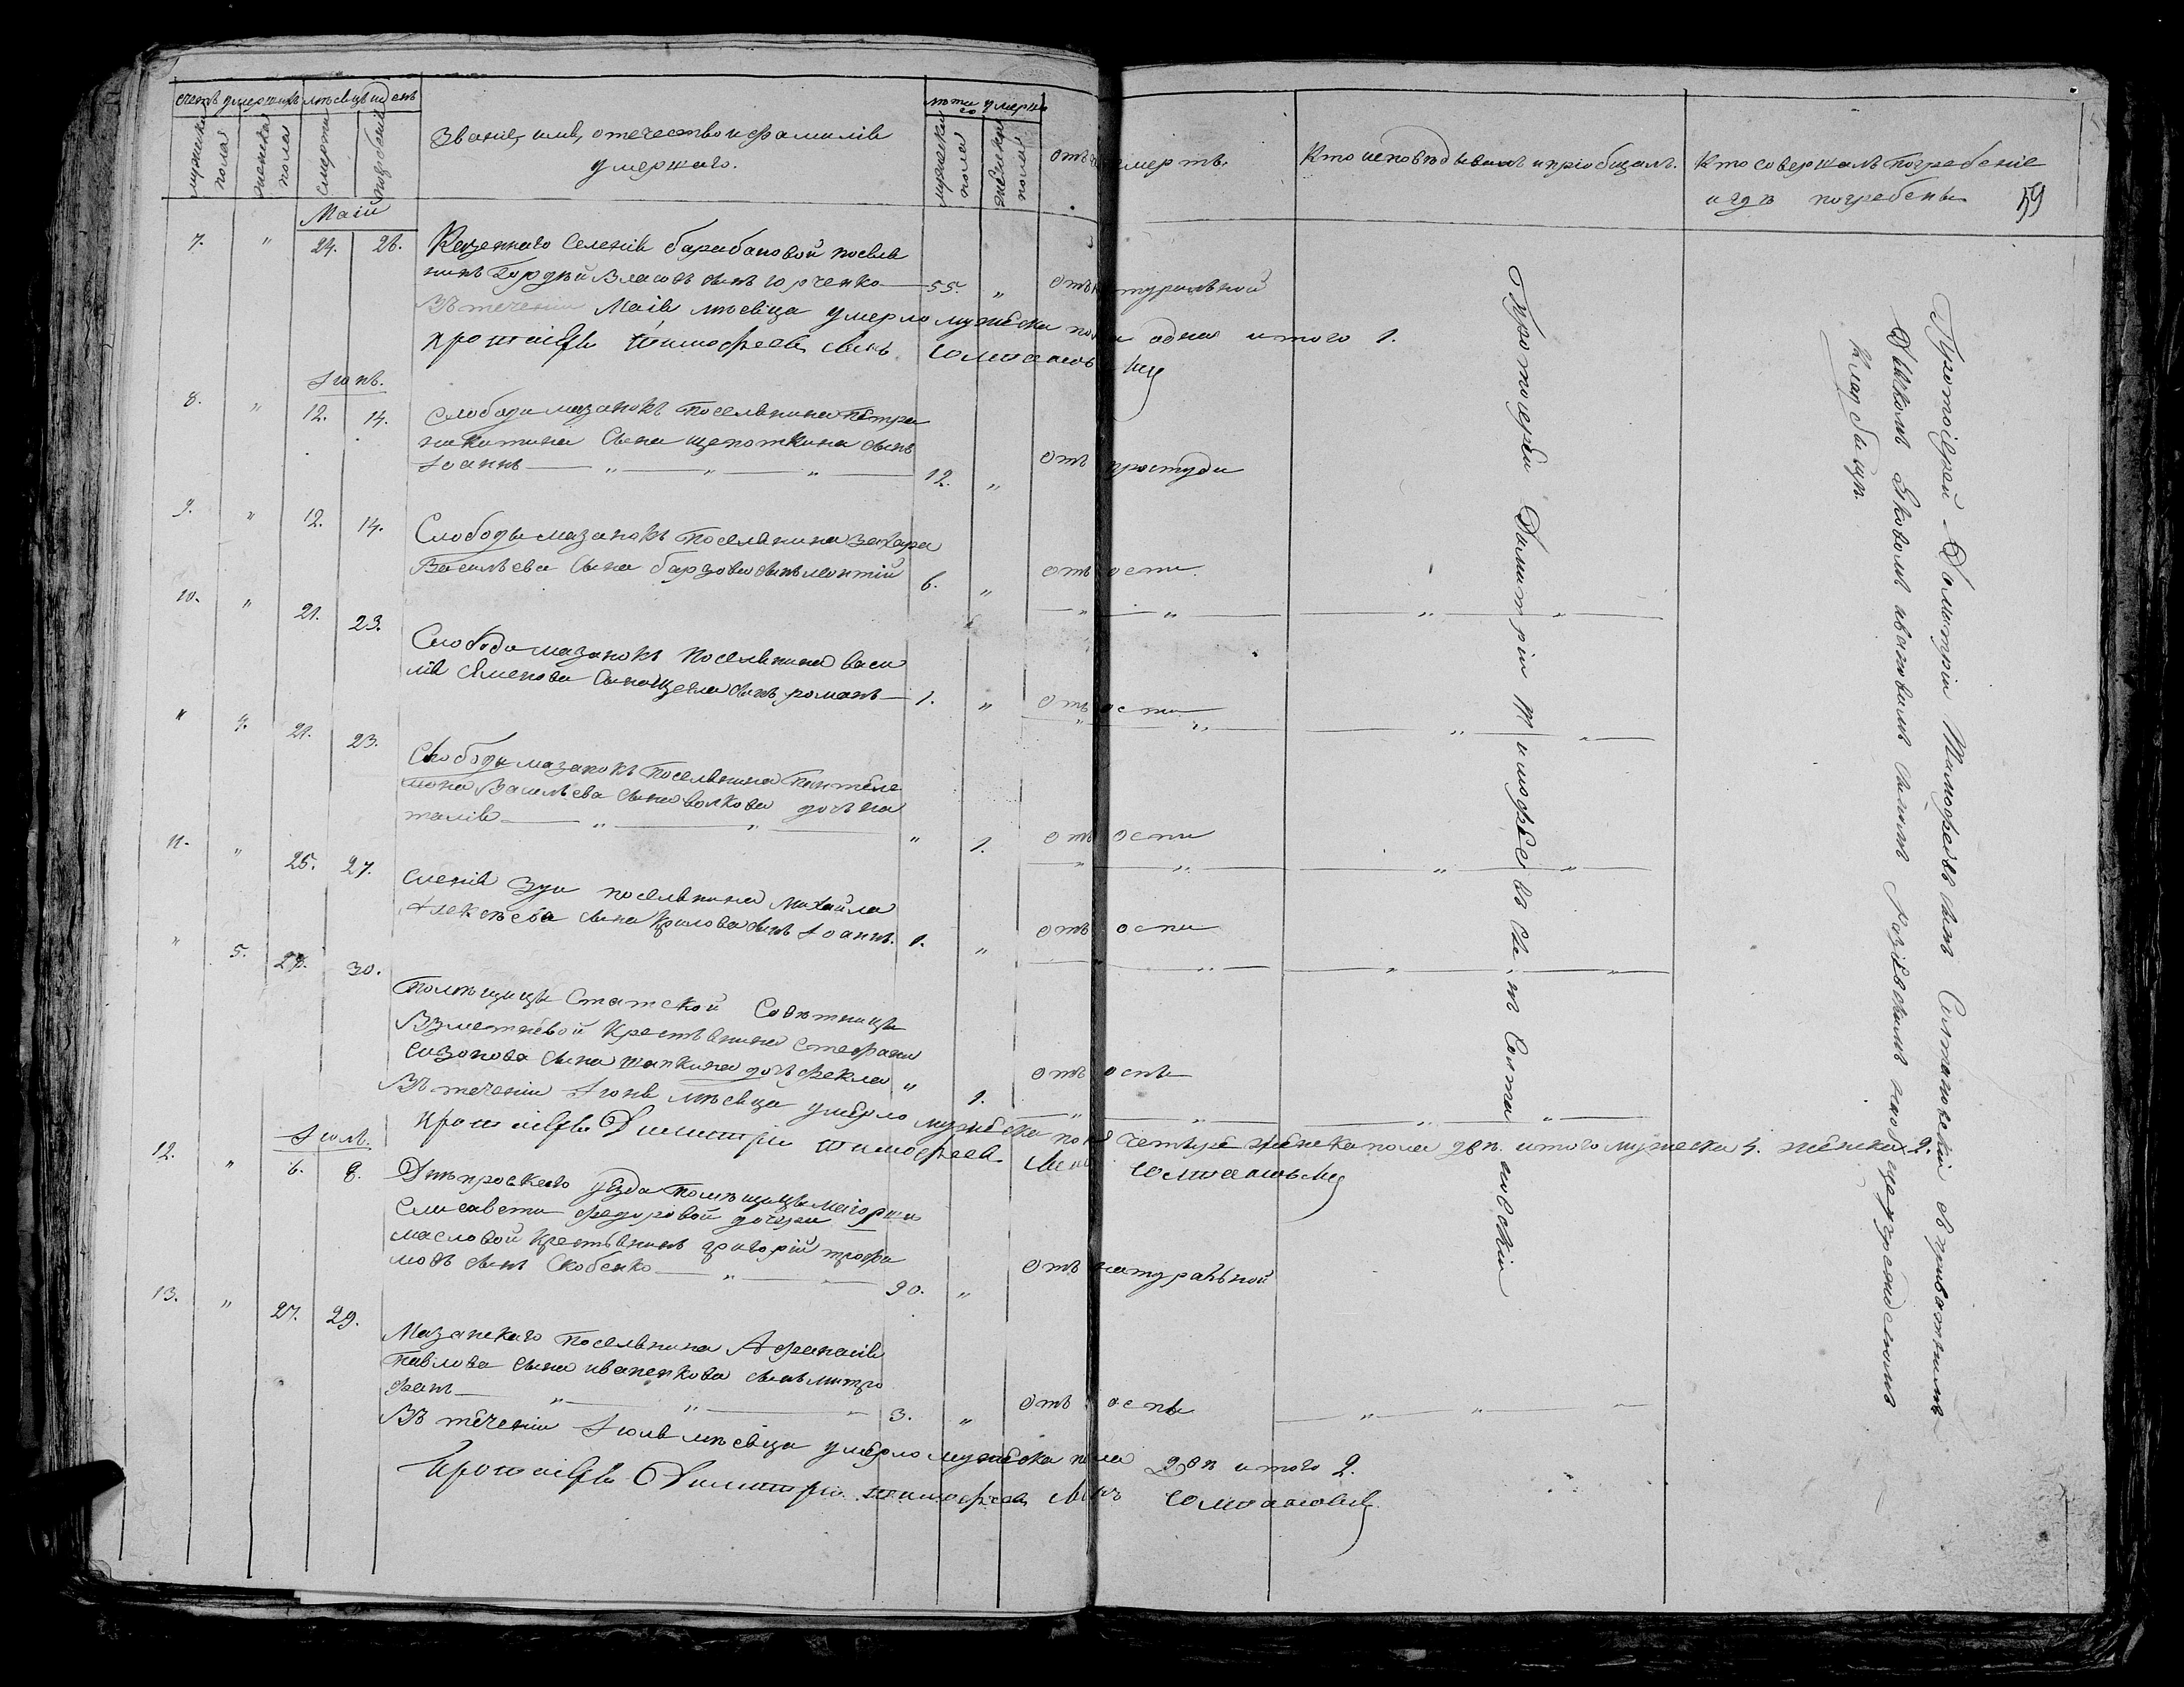 счетъ умершихъ
мѣсяцъ и день
мужеска пола
женска пола
смерти
погребенія
Званіе, имя, отечество и фамилія
умершаго.
лѣта умершаго
мужеска пола
женска пола
отъ чего
умеръ
Кто исповѣдывалъ и пріобщалъ.
Кто совершалъ погребеніе
и гдѣ погребены
59
Маій
7. " 24. 26. Казеннаго селенія барабановой поселя
нинъ Гордѣй Власовъ сынъ юрченко — 55. " отъ натуральной
Въ теченіи Маія мѣсяца умерло мужеска пола одна итого 1.
протоіерей тимофеевъ сынъ
Іюнь.
8. " 12. 14. Слободы мазанокъ поселянина петра
никитина сына щепоткина сынъ
Іоаннъ — " — " — " — 12. " отъ простуды
9. " 12. 14. Слободы мазанокъ поселянина захара
Васильева сына барзова сынъ леонтій 6. " отъ оспи
10. " 21. 23. Слободы мазанокъ поселянина васи
лія сына романъ — 1. " отъ оспи
" 4. 21. 23. Слободы мазанокъ поселянина пантеле
мона Васильева сына волкова дочь на
талія — " — " — " 1. отъ оспи
11. " 25. 27. Селенія Зуи поселянина михайла
Алексѣева сына крилова сынъ Іоаннъ. 1. " отъ оспи
" 5. 30. Помѣщицы Статской Совѣтницы
крестьянина Стефана
сизонова сына шапкина дочь фекла " 1. отъ оспы
Въ теченіи Іюня мѣсяца умерло мужеска пола четыре женска пола двѣ итого мужеска 4. женска 2.
протоіерей Димитрій тимофеевъ сынъ
Іюль.
12. " 6. 8. Днѣпровскаго уѣзда помѣщицы маіорши
Елисавети федоровой дочери
масловой крестьянинъ григорій трофи
мовъ сынъ Скобенко — " — 90. " отъ натуральной
13. " 27. 29. Мазанскаго поселянина Афанасія
павлова сына иваненкова сынъ митро
фанъ — " — " — 3. " отъ оспы
Въ теченіи Іюля мѣсяца умерло мужеска пола двѣ итого 2.
протоіерей Димитрій тимофеевъ сынъ
Протоіерей Димитрій Тимофеевъ сынъ
Протоіерей Димитрій Тимофеевъ сынъ съ приватнимъ
Дьякомъ Яковомъ ивановимъ синимъ
кладбищѣ.